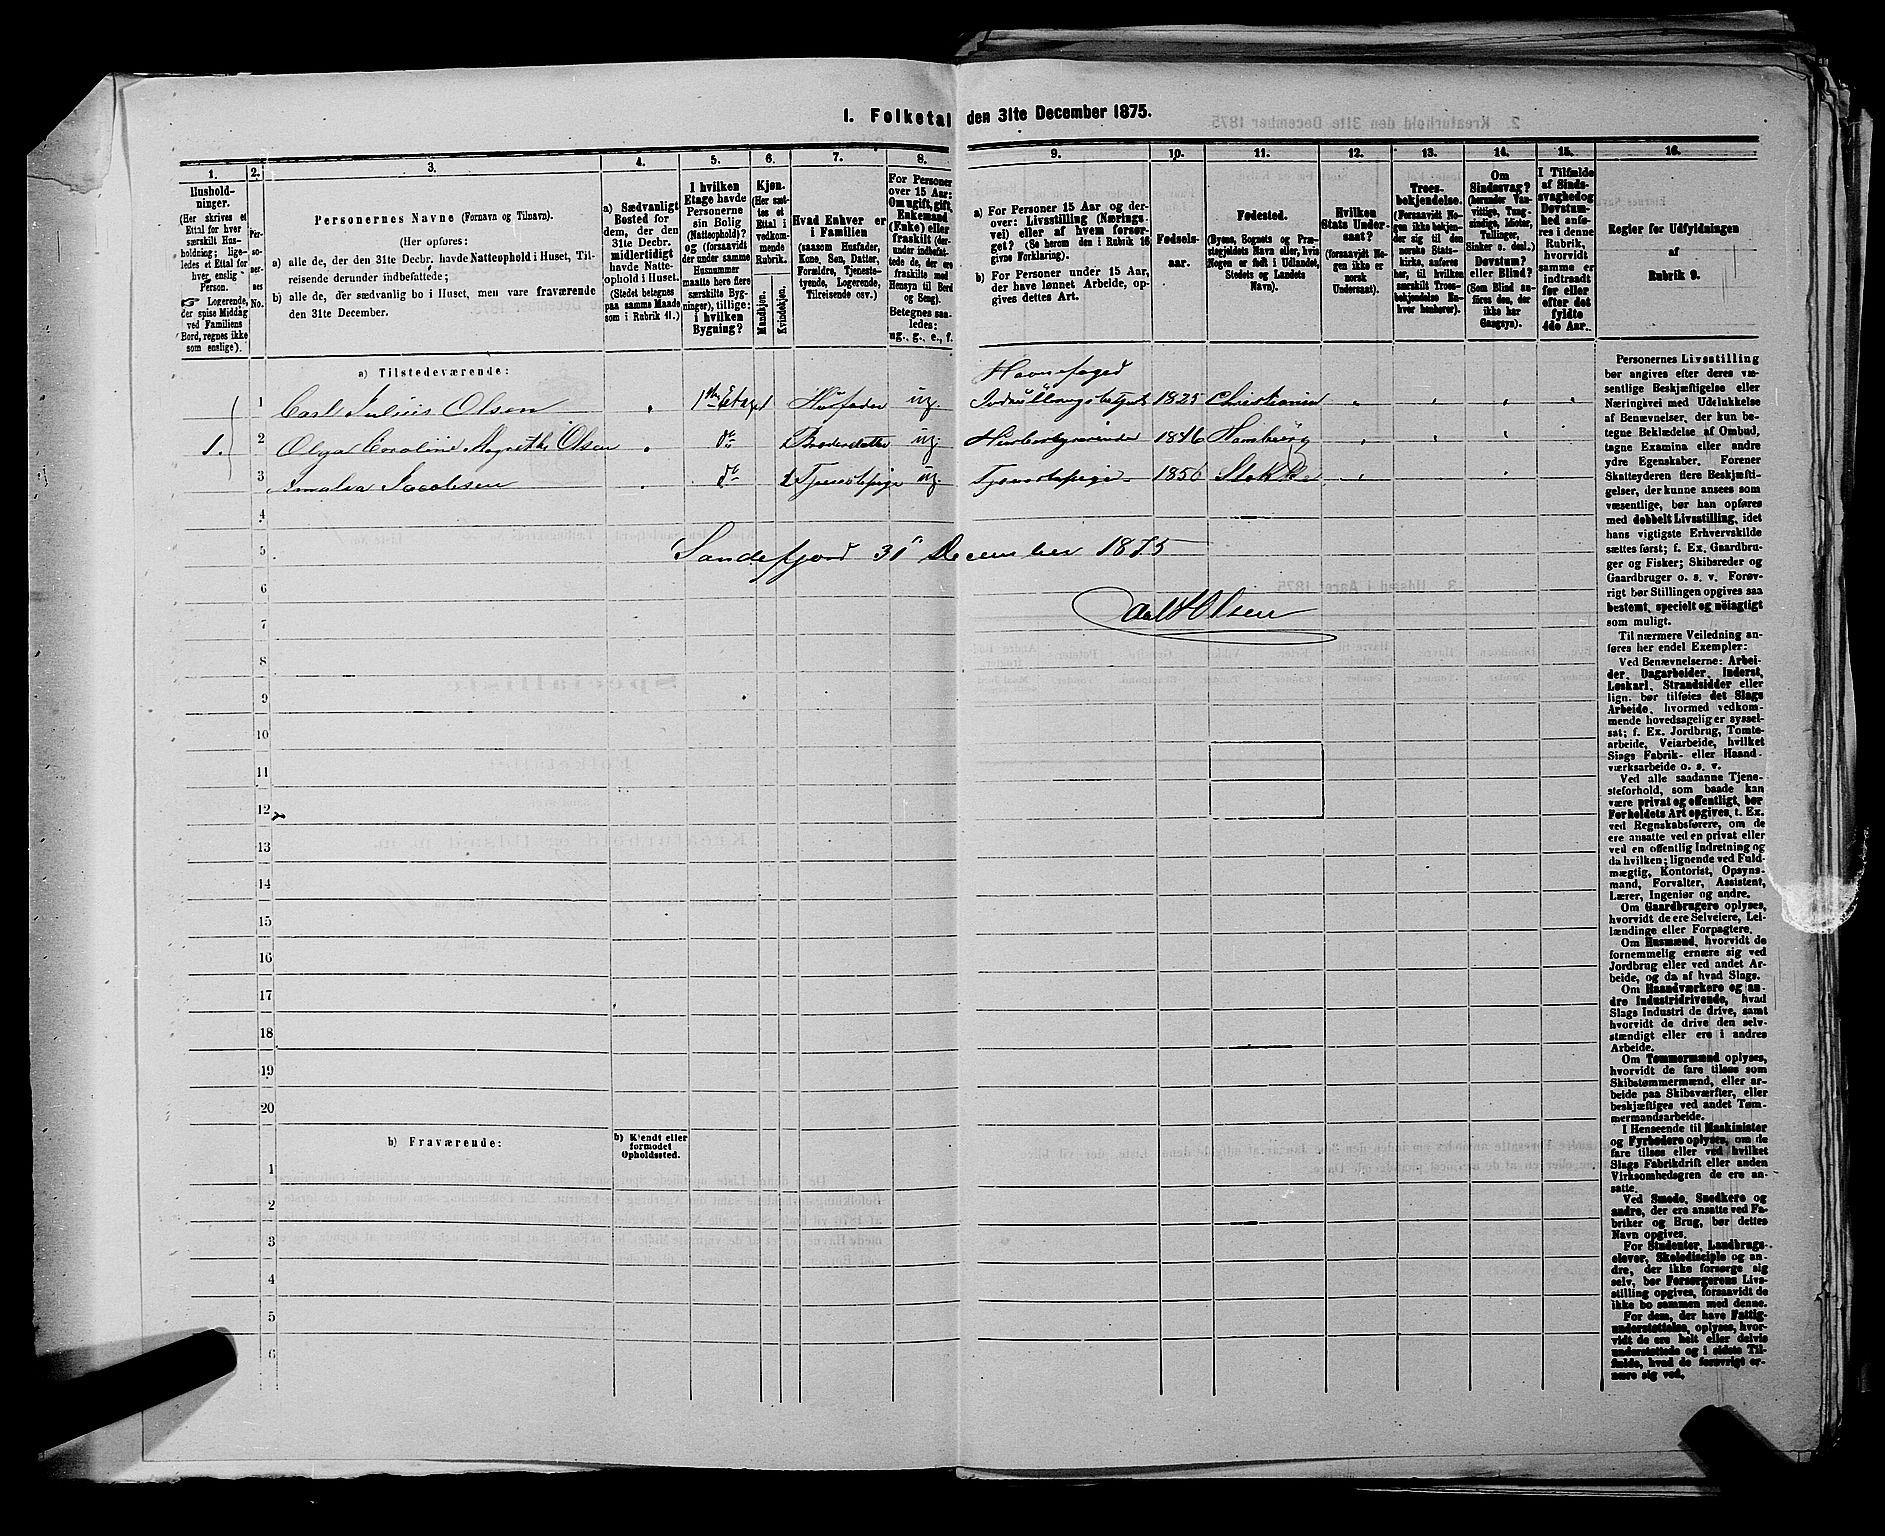 1. Folketal den 31te December 1875.
1.
Hushold-
ninger.
(Her skrives et
Ettal for hver
særskilt Hus-
holdning; lige-
ledes et Ettal for
hver, enslig
Person.
Logerende,
der spise Middag
ved Familiens
Bord, regnes ikke
som enslige).
2.
Per-
so-
ner-
nes
No.
3.
Personernes Navne (Fornavn og Tilnavn).
(Her opføres:
a) alle de, der den 31te Decbr. havde Natteophold i Huset, Til-
reisende derunder indbefattede;
b) alle de, der sædvanlig bo i Huset, men vare fraværende
den 31te December.
4.
a) Sædvanligt
Bosted for
dem, der den
31te Decbr.
midlertidigt
havde Natte-
ophold i Huset.
(Stedet betegnes
paa samme Maade
som i Rubrik 11.)
5.
I hvilken
Etage havde
Personerne
sin Bolig
(Natteophold)?
og (forsaavidt
der under samme
Husnummer
maatte høre flere
særskilte Byg-
ninger), tillige:
i hvilken
Bygning?
6.
Kjøn.
(Her sæt-
tes et
Ettal i
vedkom-
mende
Rubrik.
Mandkjøn.
Kvindekjøn.
7.
Hvad Enhver er
i Familien
(saasom Husfader,
Kone, Søn, Datter,
Forældre, Tjeneste-
tyende, Logerende,
Tilreisende osv.)
8.
For Personer
over 15 Aar;
Om ugift, gift,
Enkemand
(Enke) eller
fraskilt (der-
under indbefat-
tede de, der ere
fraskilte med
Hensyn til Bord
og Seng).
Betegnes saa-
ledes:
ug., g., e., f.
9.
a) For Personer 15 Aar og der-
over: Livsstilling (Nærings-
vei) eller af hvem forsør-
get? (Se herom den i Rubrik 16
givne Forklaring).
b) For Personer under 15 Aar,
der have lønnet Arbeide, op-
gives dettes Art.
10.
Fødsels-
aar.
11.
Fødested.
(Byens, Sognets og Præ-
stegjeldets Navn eller, hvis
Nogen er født i Udlandet,
Stedets og Landets
Navn).
12.
Hvilken
Stats Under-
saat?
(forsaavidt No-
gen ikke er
norsk
Undersaat).
13.
Troes-
bekjendelse.
(Forsaavidt No-
gen ikke bekjen-
der sig til den
norske Stats-
kirke, anføres
her, til hvilken
særskilt Troes-
bekjendelse En-
hver henhører).
14.
Om
Sindssvag?
(herunder Van-
vittige, Tung-
sindige, Idioter,
Tullinger,
Sinker o. desl.)
Døvstum?
eller Blind?
(Som Blind an-
føres den, der
ikke har
Gangsyn).
15.
I Tilfælde
af Sinds-
svaghed og
Døvstum-
hed anfø-
res i denne
Rubrik,
hvorvidt
samme er
indtraadt
før eller
efter det
fyldte
4de Aar.
16.
Regler for Udfyldningen
af
Rubrik 9.
a) Tilstedeværende:
Havnefoged
1. 1 Carl Julius Olsen 1ste Etage 1 Husfader ug. 1825 Christiania
2 Olga Caroline Magrethe Olsen do 1 Broderdatter ug. 1846 Hamburg
3 Amalia Jacobsen do 1 Tjenestepige ug. Tjenestepige 1856 Stokke
4
5
Sandefjord 31" December 1875
6
7
Carl J Olsen
8
9
10
11
12
13
14
15
16
17
18
19
20
b) Fraværende:
b) Kjendt eller
formodet
Opholdssted.
1
2
3
4
5
6
Personernes Livsstilling
bør angives efter deres væ-
sentlige Beskjæftigelse eller
Næringsvei med Udelukkelse
af Benævnelser, der kun be-
tegne Beklædelse af Ombud,
tagne Examina eller andre
ydre Egenskaber. Forener
Skatteyderen flere Beskjæfti-
gelser, der kunne ansees som
væsentlige, bør han opføres
med dobbelt Livsstilling, idet
hans vigtigste Erhvervskilde
sættes først; f. Ex. Gaardbru-
ger og Fisker; Skibsreder og
Gaardbruger o. s. v. Forøv-
rigt bør Stillingen opgives saa
bestemt, specielt og nøiagtigt
som muligt.
Til nærmere Veiledning an-
føres her endel Exempler:
Ved Benævnelserne: Arbei-
der, Dagarbeider, Inderst,
Løskarl, Strandsidder eller
lign. bør tilføies det Slags
Arbeide, hvormed vedkom-
mende hovedsagelig er syssel-
sat; f. Ex. Jordbrug, Tomte-
arbeide, Veiarbeide, hvilket
Slags Fabrik- eller Haand-
værksarbeide o. s. v.
Ved alle saadanne Tjene-
steforhold, som baade kan
være privat og offentligt, bør
Forholdets Art opgives, t. Ex.
ved Regnskabsførere, om de
ere ansatte ved en privat eller
ved en offentlig Indretning og
da hvilken; lignende ved Fuld-
mægtig, Kontorist, Opsyns-
mand, Forvalter, Assistent,
Lærer, Ingeniør og andre.
Om Gaardbrugere oplyses,
hvorvidt de ere Selveiere, Lei-
lændinge eller Forpagtere.
Om Husmænd, hvorvidt de
fornemmelig ernære sig ved
Jordbrug eller ved andet Ar-
beide, og da af hvad Slags.
Om Haandværkere og an-
dre Industridrivende, hvad
Slags Industri de drive, samt
hvorvidt de drive den selv-
stændigt eller ere i andres
Arbeide.
Om Tømmermænd oplyses,
hvorvidt de fare tilsøs som
Skibstømmermænd, eller ar-
beide paa Skibsværfter, eller
beskjæftiges ved andet Tøm-
mermandsarbeide.
I Henseende til Maskinister
og Fyrbødere oplyses, om de
fare tilsøs eller ved hvilket
Slags Fabrikdrift eller anden
Virksomhedsgren de ere an-
satte.
Ved Smede, Snedkere og
andre, der ere ansatte ved Fa-
briker og Brug, bør dettes
Navn opgives.
For Studenter, Landbrugs-
elever, Skoledisciple og an-
dre, der ikke forsørge sig
selv, bør Forsørgerens Livs-
stilling opgives, forsaavidt de
ikke bo sammen med denne.
For dem, der have Fattig-
understøttelse, oplyses, hvor-
vidt de ere helt eller delvis
understøttede og i sidste Til-
fælde, hvad de forøvrigt er-
nære sig ved.